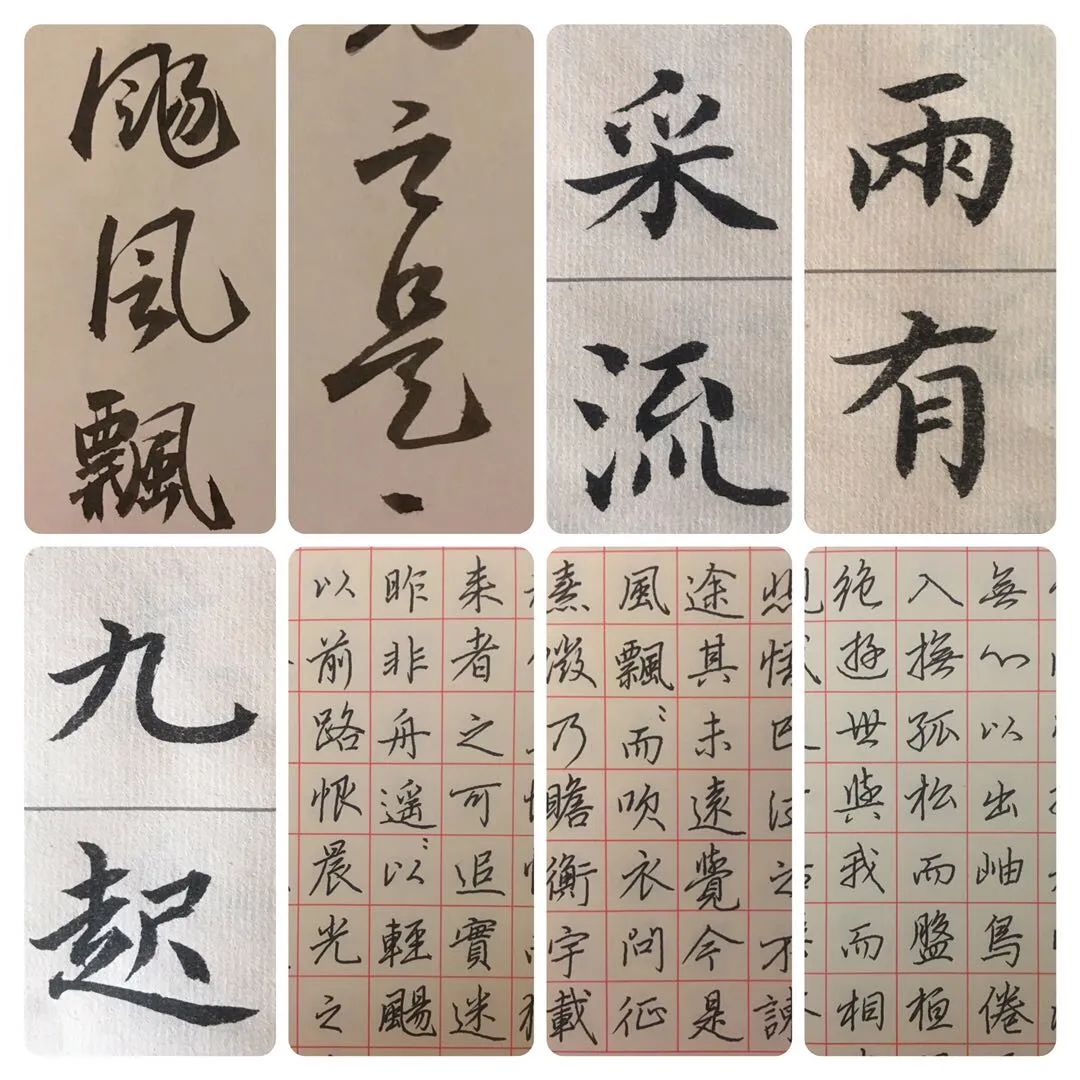 颺風飄
之是
采流
兩有
九起
来者之可追實迷
昨非舟遥〻以輕颺
以前路恨晨光之
途其未遠覺今是
風飄〻而吹衣問征
熹微乃瞻衡宇載
無心以出岫鳥倦
入撫孤松而盤桓
绝遊世與我而相